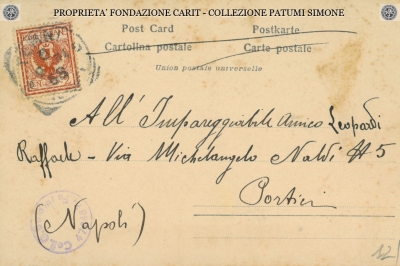 PROPRIETA' FONDAZIONE CARIT - COLLEZIONE PATUMI SIMONE
Post Card Postkarte
Cartolina postale Carte postale
Union postale universelle
All' Impareggiabile Amico Leopardi
Raffaele - Via Michelangelo Naldi # 5
Portici
(Napoli)
12